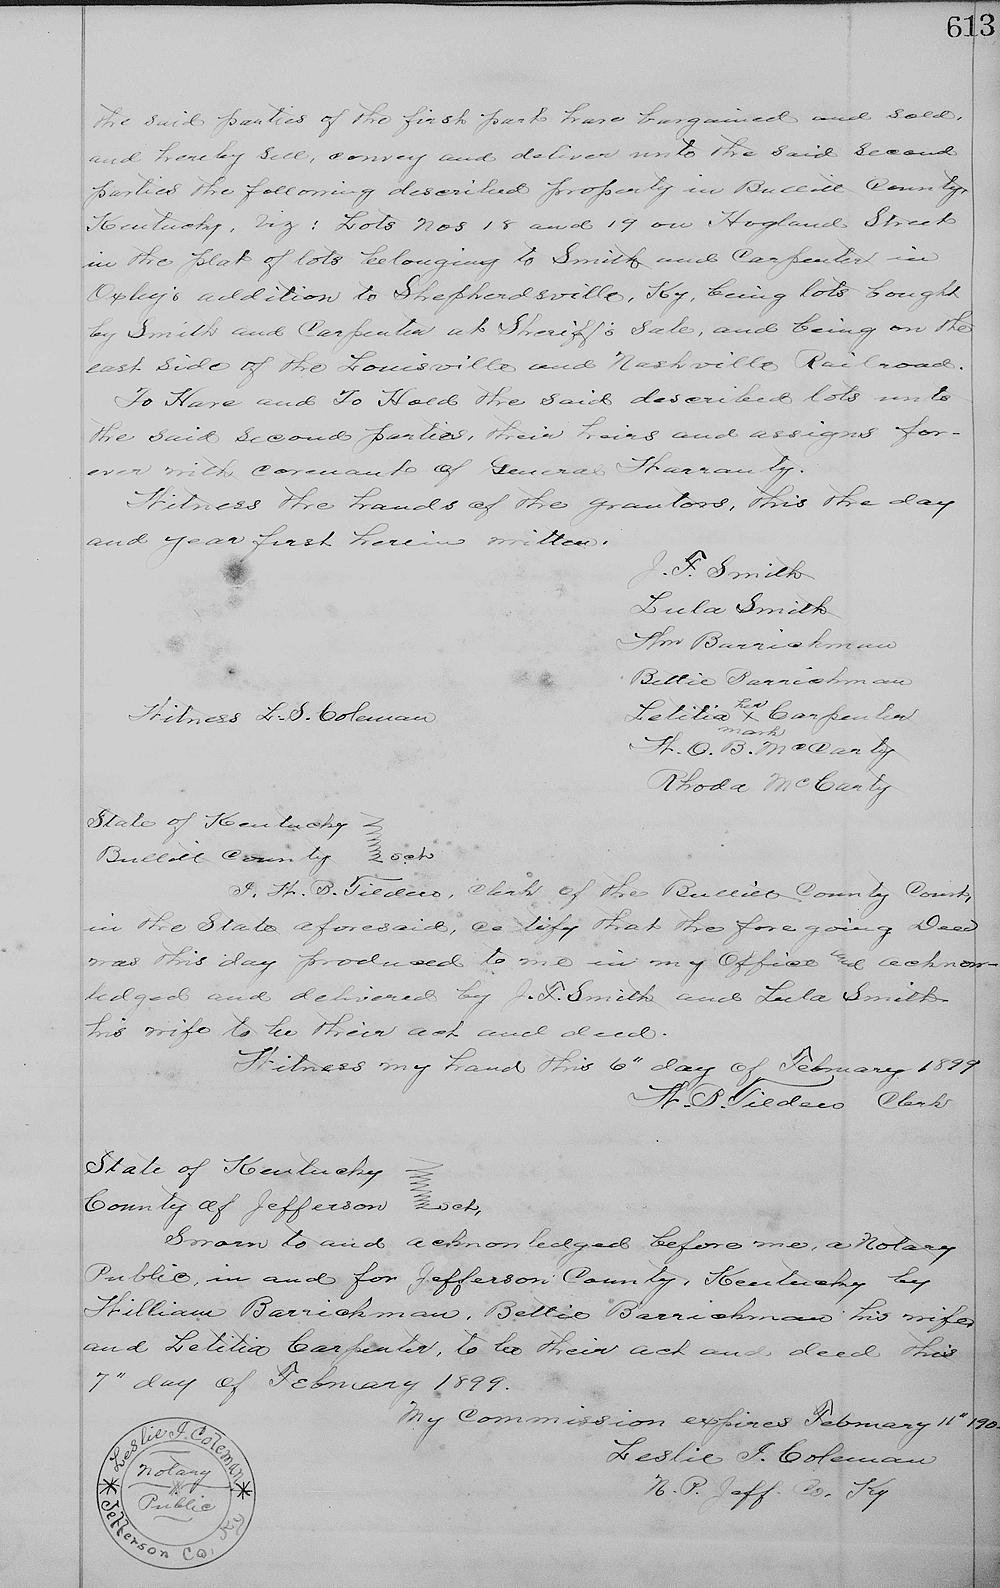 613
the said parties of the first part have bargained and sold,
and hereby sell, convey and deliver unto the said second
parties the following described property in Bullitt County,
Kentucky, Viz: Lots Nos 18 and 19 on Hogland Street
in the plat of lots belonging to Smith and Carpenter in
Oxley's addition to Shepherdsville, Ky, being lots bought
by Smith and Carpenter at Sheriff's Sale, and being on the
east side of the Louisville and Nashville Railroad.
To Have and To Hold the said described lots unto
the said second parties, their heirs and assigns for-
ever with covenant of General Warranty.
Witness the hands of the grantors, this the day
and year first herein written.
J. F. Smith
Lula Smith
Wm Barrickman
Bettie Barrickman
Witness L. S. Coleman
Letitia her X mark Carpenter
W. O. B. McCarty
Rhoda McCarty
State of Kentucky
Bullitt County } sct
I, W. B. Tilden, Clerk of the Bullitt County Court,
in the State aforesaid, certify that the foregoing Deed
was this day produced to me in my Office and acknow-
ledged and delivered by J. F. Smith and Lula Smith
his wife to be their act and deed.
Witness my hand this 6" day of February 1899
W. B. Tilden Clerk
State of Kentucky
County of Jefferson } sct,
Sworn to and acknowledged before me, a Notary
Public, in and for Jefferson County, Kentucky by
William Barrickman, Bettie Barrickman his wife
and Letitia Carpenter, to be their act and deed this
7" day of February 1899.
My Commission expires February 11" 190
Leslie I. Coleman
N. P. Jeff. Co. Ky
Leslie I. Coleman
Notary
Public
Jefferson Co, Ky